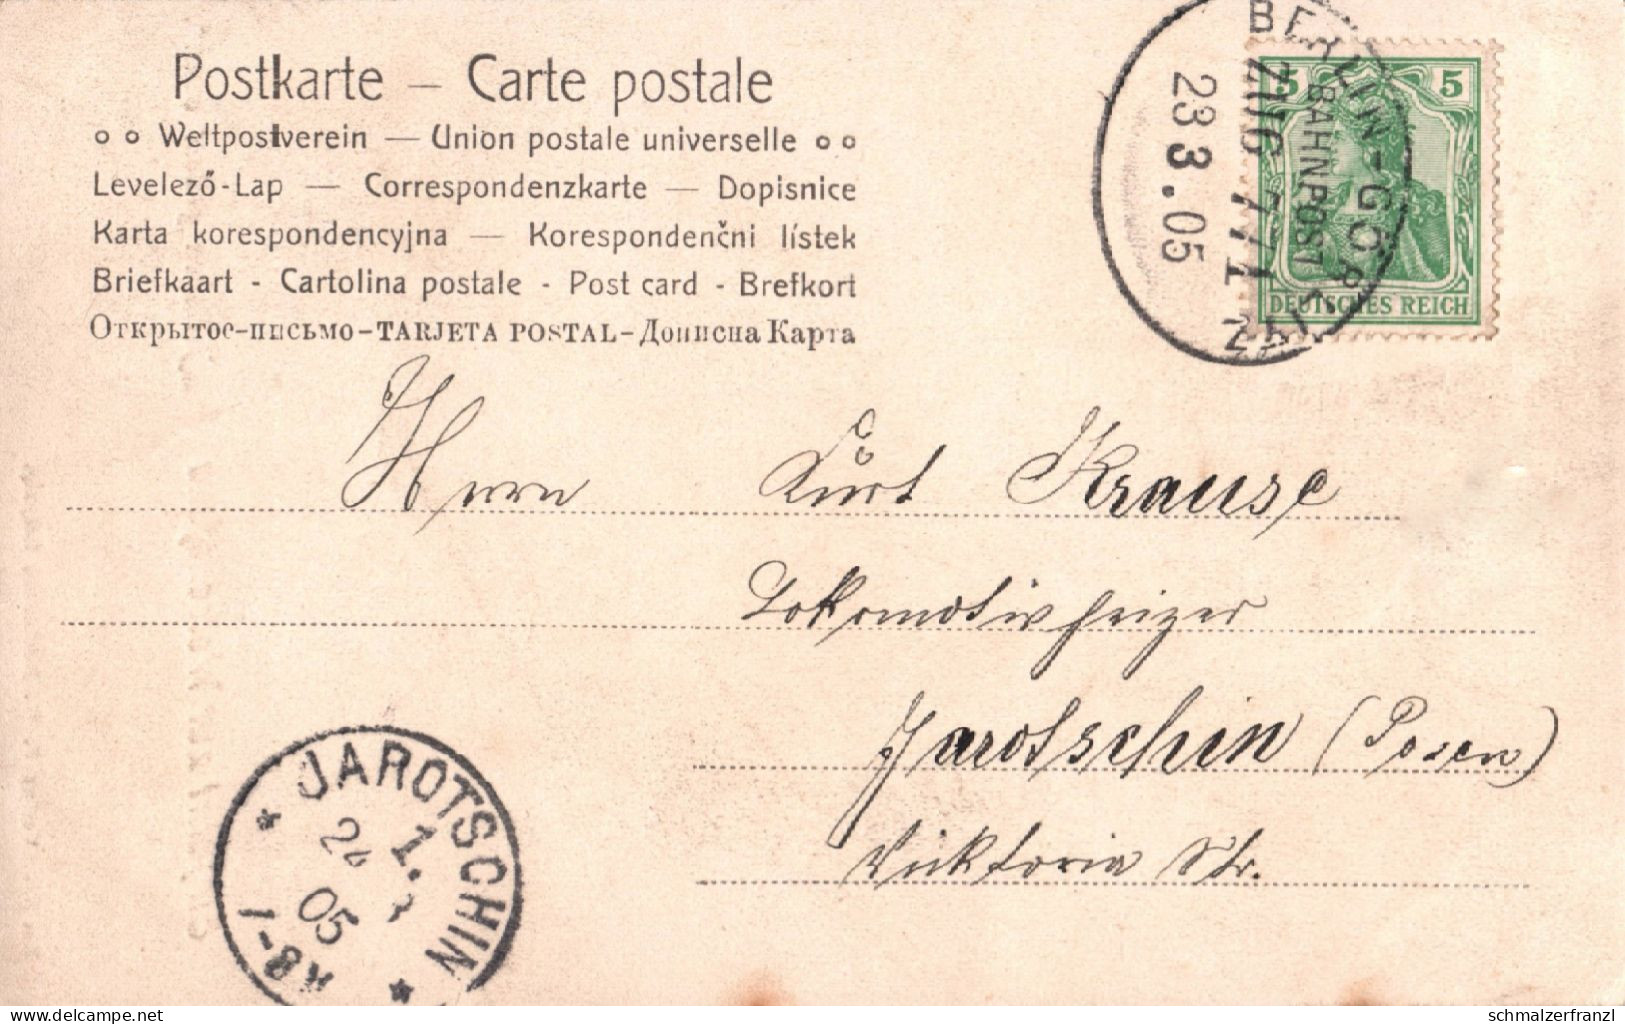 Postkarte – Carte postale
Weltpostverein — Union postale universelle
Levelező-Lap — Correspondenzkarte — Dopisnice
Karta korespondencyjna — Korespondenčni lístek
Briefkaart - Cartolina postale - Post card - Brefkort
Открытое-письмо-TARJETA POSTAL-Дописна Карта
BERLIN-GÖRLITZ
BAHNPOST
ZUG 771
23 3.05
5 5
DEUTSCHES REICH
Herrn Kurt Krause
Lokomotivheizer
Jarotschin (Posen)
Viktoria Str.
* JAROTSCHIN *
1.
24 3
05
7-8V
delcampe.net
schmalzerfranzl